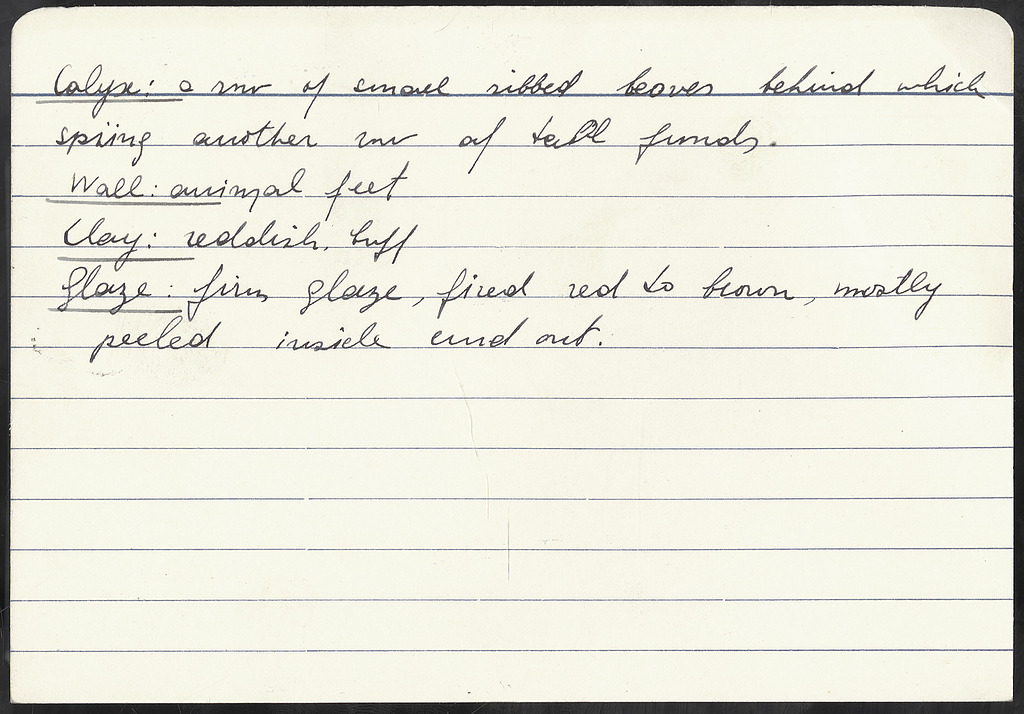 Calyx: a row of small ribbed leaves behind which
spring another row of tall fronds.
Wall: animal feet
Clay: reddish, buff
Glaze: firm glaze, fired red to brown, mostly
peeled inside and out.